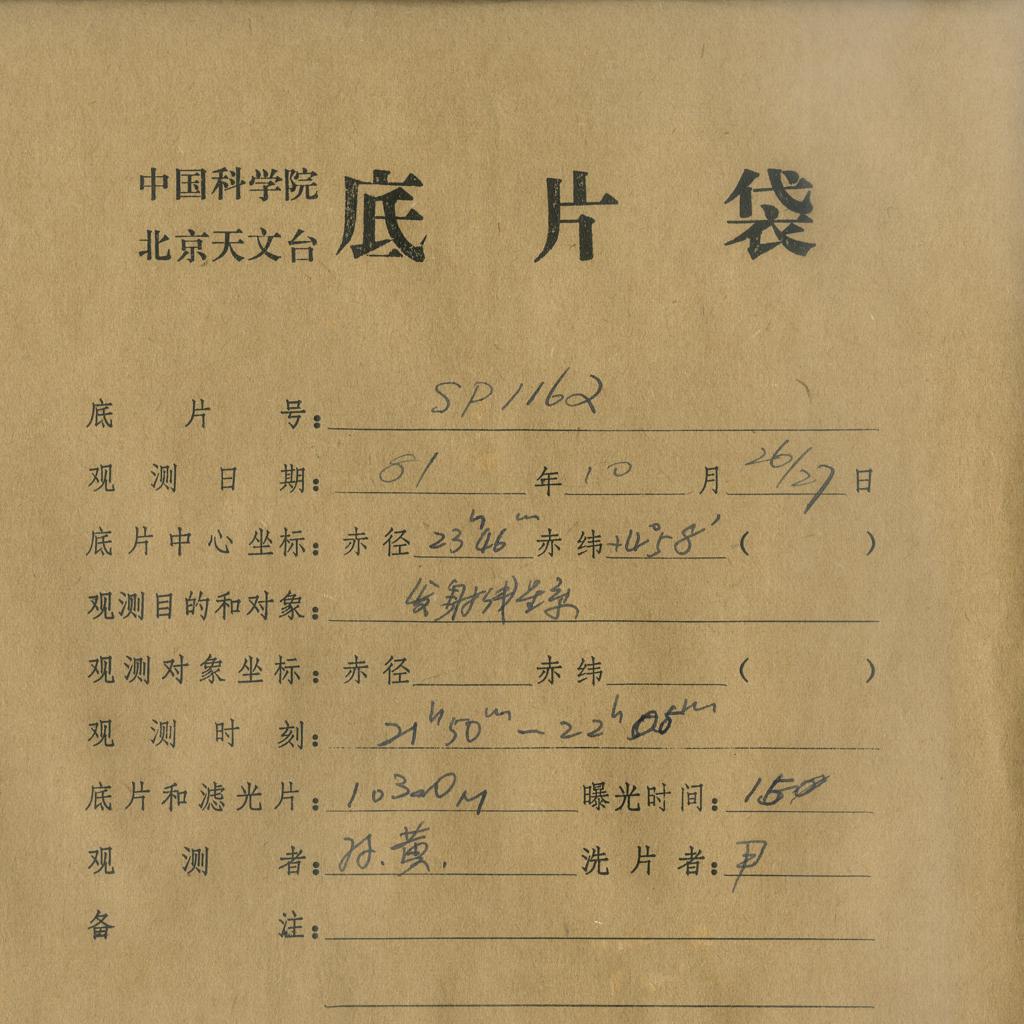 中国科学院
北京天文台
底片袋
底片号：SP1162
观测日期：81年10月26/27日
底片中心坐标：赤径23ʰ46ᵐ赤纬+4°58′（ ）
观测目的和对象：发射线星系
观测对象坐标：赤径 赤纬 （ ）
观测时刻：21ʰ50ᵐ—22ʰ05ᵐ
底片和滤光片：103aO 曝光时间：15
观测者：孙.黄. 洗片者：尹
备注：